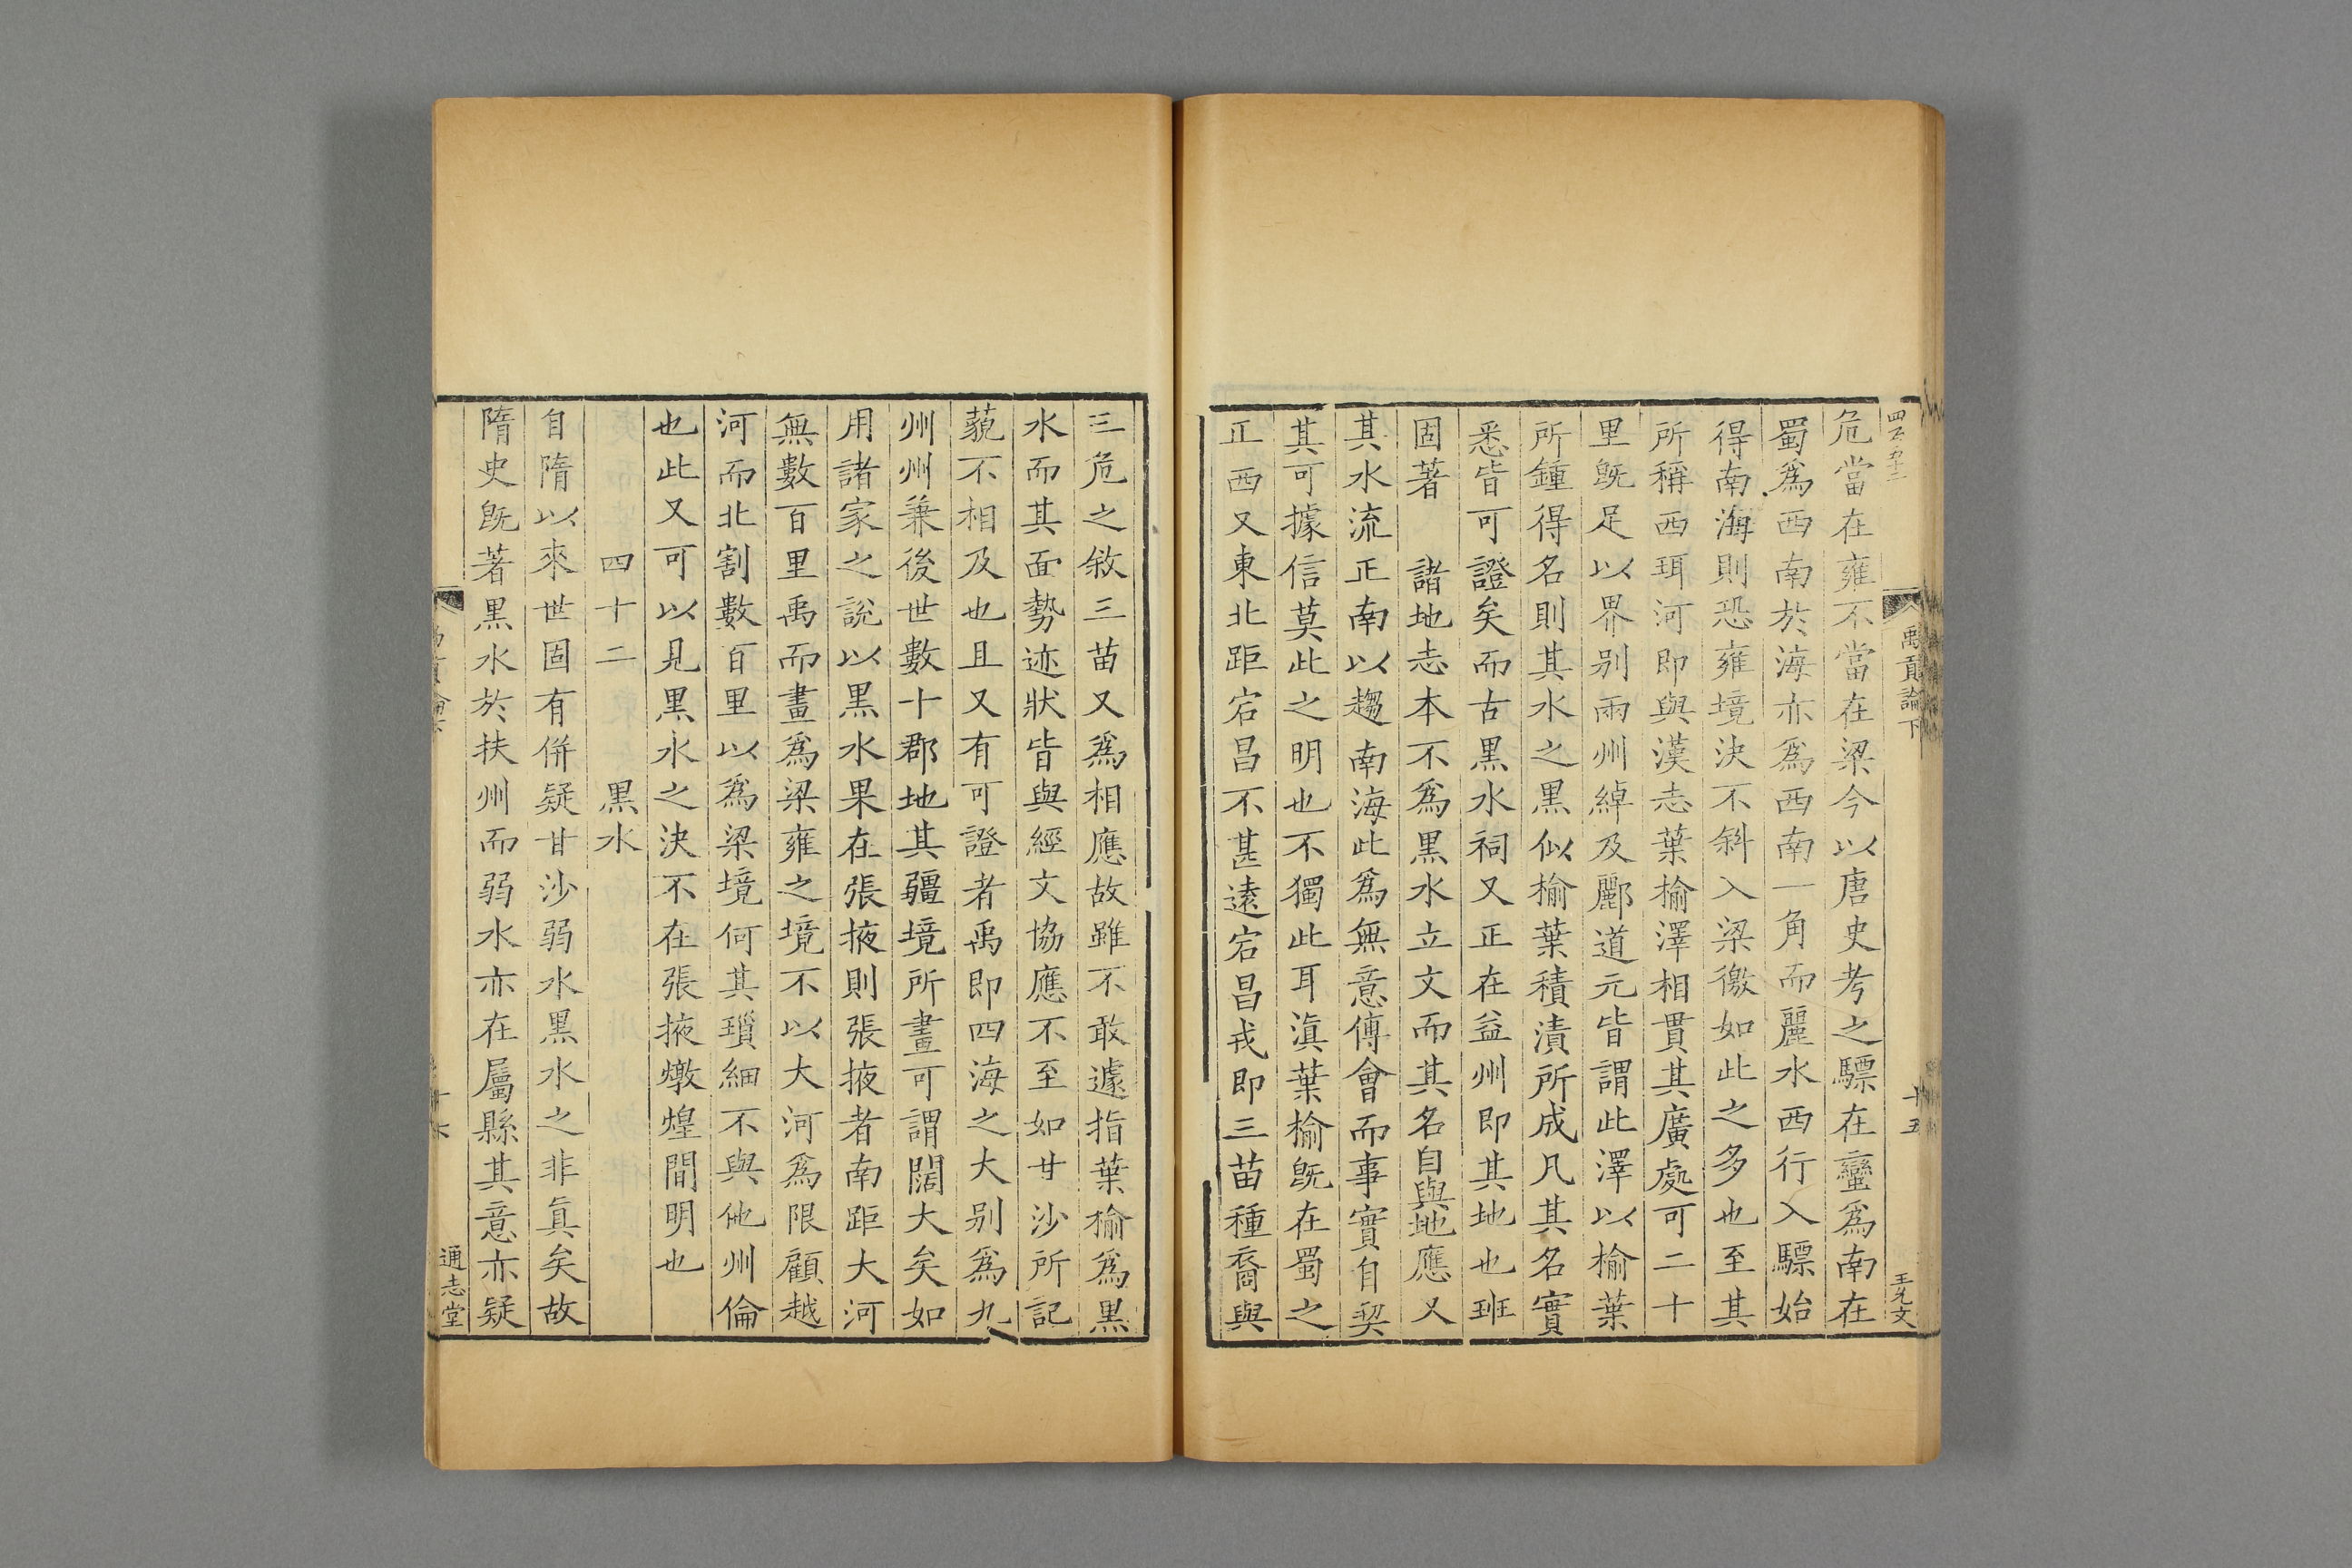 禹貢論下
十五
王允文
危當在雍不當在梁今以唐史考之驃在蠻為南在
蜀爲西南於海亦爲西南一角而麗水西行入驃始
得南海則恐雍境決不斜入梁徼如此之多也至其
所稱西珥河即與漢志葉榆澤相貫其廣處可二十
里既足以界别兩州綽及酈道元皆謂此澤以榆葉
所鍾得名則其水之黑似榆葉積漬所成凡其名實
悉皆可證矣而古黑水祠又正在益州即其地也班
固著　諸地志本不爲黑水立文而其名自與地應又
其水流正南以趨南海此爲無意傳會而事實自契
其可據信莫此之明也不獨此耳滇葉榆既在蜀之
正西又東北距宕昌不甚遠宕昌戎即三苗種裔與
三危之敘三苗又爲相應故雖不敢遽指葉榆爲黑
水而其面勢迹狀皆與經文協應不至如甘沙所記
藐不相及也且又有可證者禹即四海之大别爲九
州州兼後世數十郡地其疆境所畫可謂闊大矣如
用諸家之說以黑水果在張掖則張掖者南距大河
無數百里禹而畫爲梁雍之境不以大河爲限顧越
河而北割數百里以爲梁境何其瑣細不與他州倫
也此又可以見黑水之決不在張掖燉煌間明也
四十二　黑水
自隋以來世固有併疑甘沙弱水黑水之非真矣故
隋史既著黑水於扶州而弱水亦在屬縣其意亦疑
通志堂